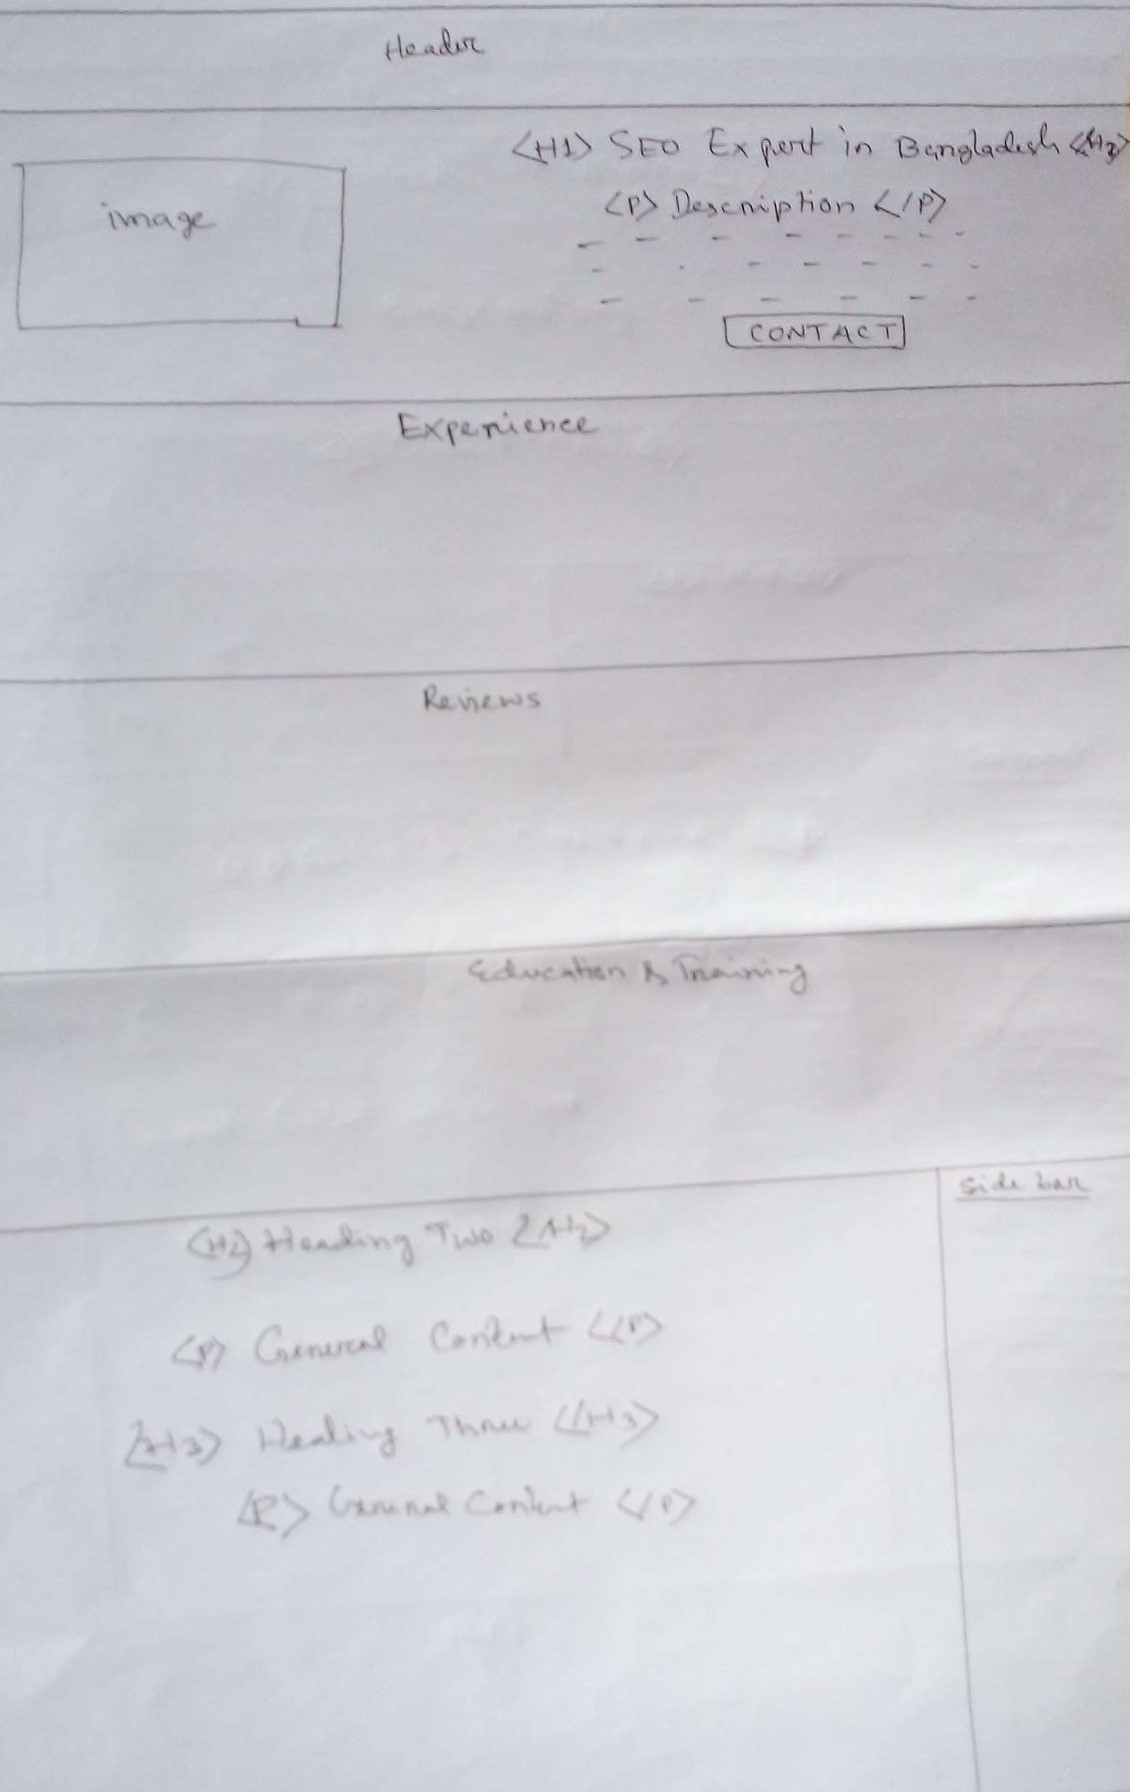 Header
<H1> SEO Expert in Bangladesh </H2>
image
<P> Description </P>
CONTACT
Experience
Reviews
Education & Training
Side bar
<H2> Heading Two </H2>
<P> General Content </P>
<H3> Heading Three </H3>
<P> General Content </P>